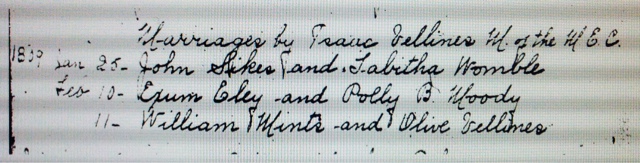 Marriages by Isaac Vellines M. of the M E. C.
1839 Jan 25- John Sikes and Tabitha Womble
Feb 10- Exum Eley and Polly B Moody
11- William Mints and Olive Vellines